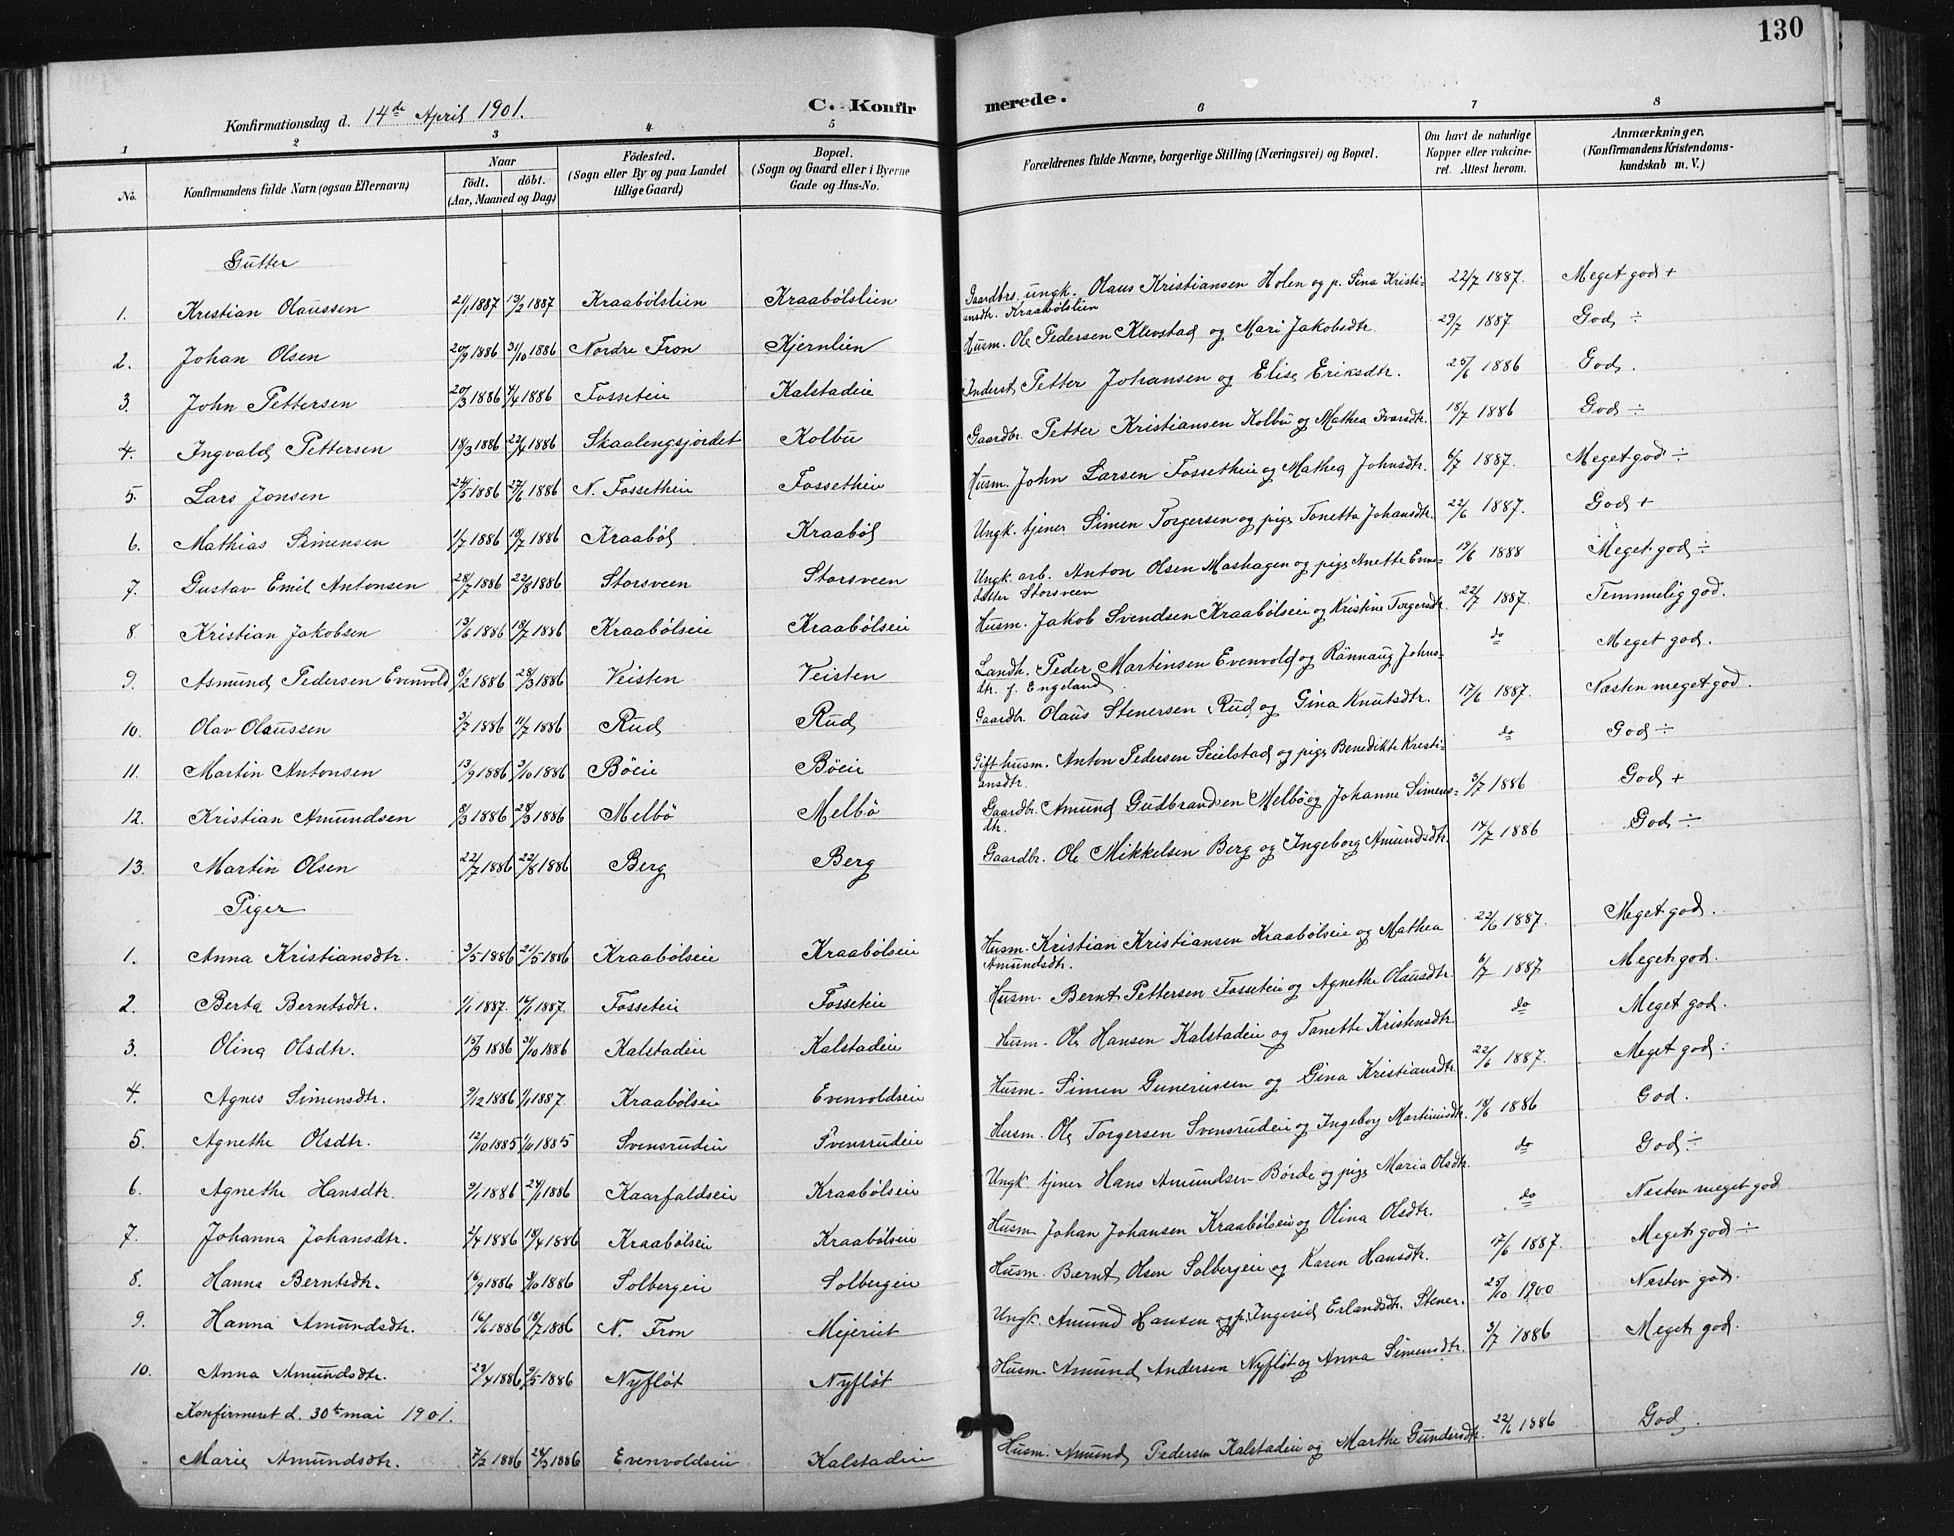 130
Konfirmationsdag d. 14de April 1901.
C. Konfirmerede.
1 2 3 4 5 6 7 8
No.
Konfirmandens fulde Navn (ogsaa Efternavn)
Naar født. døbt. (Aar, Maaned og Dag)
Födested. (Sogn eller By og paa Landet tillige Gaard)
Bopæl. (Sogn og Gaard eller i Byerne Gade og Hus-No.
Forældrenes fulde Navne, borgerlige Stilling (Næringsvei) og Bopæl.
Om havt de naturlige Kopper eller vakcineret. Attest herom.
Anmærkninger. (Konfirmandens Kristendomskundskab m. V.)
Gutter
1. Kristian Olaussen 21/1 1887 13/2 1887 Kraabølslien Kraabølslien Gaardbrs. ungk. Olaus Kristiansen Holen og p. Sina Kristiansdtr. Kraabølslien 22/7 1887. Meget god +
2. Johan Olsen 20/9 1886 31/10 1886 Nordre Fron Kjernlien Husm. Ole Pedersen Klevstad og Mari Jakobsdtr. 29/7 1887 God ÷
3. John Pettersen 20/3 1886 4/4 1886 Fosseteie Kalstadeie Inderst Petter Johansen og Elise Eriksdtr. 25/6 1886 God.
4. Ingvald Pettersen 18/3 1886 22/4 1886 Skaalengsjordet Kolbu Gaardbr. Petter Kristiansen Kolbu og Mathea Ivarsdtr. 18/7 1886 God ÷
5. Lars Jonsen 24/5 1886 27/6 1886 N. Fossetheie Fossetheie Husm. John Larsen Fossetheie og Mathea Johnsdtr. 6/7 1887. Meget god ÷
6. Mathias Simensen 1/7 1886 18/7 1886 Kraabøl Kraabøl Ungk. tjener Simen Torgersen og pige Tonetta Johansdtr. 22/6 1887. God +
7. Gustav Emil Antonsen 28/7 1886 22/8 1886 Storsveen Storsveen Ungk. arb. Anton Olsen Moshagen og pige Anette Evensdatter Storsveen 19/6 1888 Meget god ÷
8 Kristian Jakobsen 13/6 1886 18/7 1886 Kraabølseie Kraabølseie Husm. Jakob Svendsen Kraabølseie og Kristine Torgersdtr. 22/7 1887. Temmelig god.
9. Asmund Pedersen Evenvold 9/2 1886 28/3 1886 Veisten Veisten Landh. Peder Martinsen Evenvold og Rønnaug Johnsdtr. f. Engeland do Meget god.
10. Olav Olaussen 3/7 1886 11/7 1886 Rud Rud Gaardbr. Olaus Stenersen Rud og Gina Knutsdtr. 17/6 1887. Næsten meget god.
11. Martin Antonsen 13/9 1886 3/10 1886 Böeie Böeie Gift husm. Anton Pedersen Seielstad og pige Benedikte Kristiansdtr. do God ÷
12. Kristian Amundsen 8/3 1886 28/3 1886 Melbö Melbö Gaardbr. Amund Gudbrandsen Melbö og Johanne Simensdtr. 3/7 1886 God +
13. Martin Olsen 22/7 1886 22/8 1886 Berg Berg Gaardbr. Ole Mikkelsen Berg og Ingeborg Amundsdtr. 14/7 1886 God ÷
Piger
1. Anna Kristiansdtr. 3/5 1886 21/5 1886 Kraabølseie Kraabølseie Husm. Kristian Kristiansen Kraabølseie og Mathea Amundsdtr. 22/6 1887. Meget god.
2. Berta Berntsdtr. 1/1 1887. 16/1 1887. Fosseteie Fosseteie Husm. Bernt Pettersen Fosseteie og Agnethe Olausdtr. 6/7 1887 Meget god.
3. Olina Olsdtr. 15/9 1886 31/10 1886 Kalstadeie Kalstadeie Husm. Ole Hansen Kalstadeie og Tonette Kristensdtr. do Meget god.
4. Agnes Simensdtr. 9/12 1886 1/1 1887. Kraabølseie Evenvoldseie Husm. Simen Guneriussen og Gina Kristiansdtr. 22/6 1887. Meget god.
5. Agnethe Olsdtr. 12/10 1885 1885 Svensrudeie Svensrudeie Husm. Ole Torgersen Svensrudeie og Ingeborg Martinusdtr. 18/6 1886 God.
6. Agnethe Hansdtr. 9/1 1886 24/1 1886 Kaarfaldseie Kraabølseie Ungk. tjener Hans Amundsen Børde og pige Maria Olsdtr. do God ÷
7. Johanna Johansdtr. 2/4 1886 18/4 1886 Kraabølseie Kraabølseie Husm. Johan Johansen Kraabølseie og Olina Olsdtr. do Næsten meget god
8. Hanna Berntsdtr. 16/9 1886 3/10 1886 Solbergeie Solbergeie Husm. Bærnt Olsen Solbergeie og Karen Hansdtr. 17/6 1887. Meget god ÷
9. Hanna Amundsdtr. 16/6 1886 18/7 1886 N. Fron Mejeriet Ungk. Amund Hansen og p. Ingerid Erlandsdtr. Stener. 25/10 1900 Næsten god.
10. Anna Amundsdtr. 23/4 1886 9/5 1886 Nyfløt Nyfløt Husm. Amund Andersen Nyfløt og Anna Simensdtr. 3/7 1886 Meget god.
Konfirmeret d. 30te mai 1901.
Marie Amundsdtr. 7/2 1886 28/3 1886 Evenvoldseie Kalstadeie Husm. Amund Pedersen Kalstadeie og Marthe Gundersdtr. 22/6 1886 God.